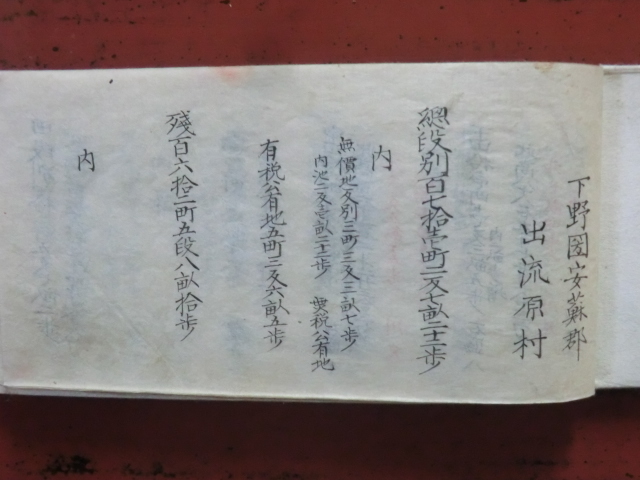 下野國安蘓郡
出流原村
總段別百七拾壱町二反七畝二十二歩
内
無價地反別三町三反三畝七歩
内池二反壱畝二十二歩 税公有地
有税公有地五町三反六畝五歩
殘百六拾二町五段八畝拾歩
内